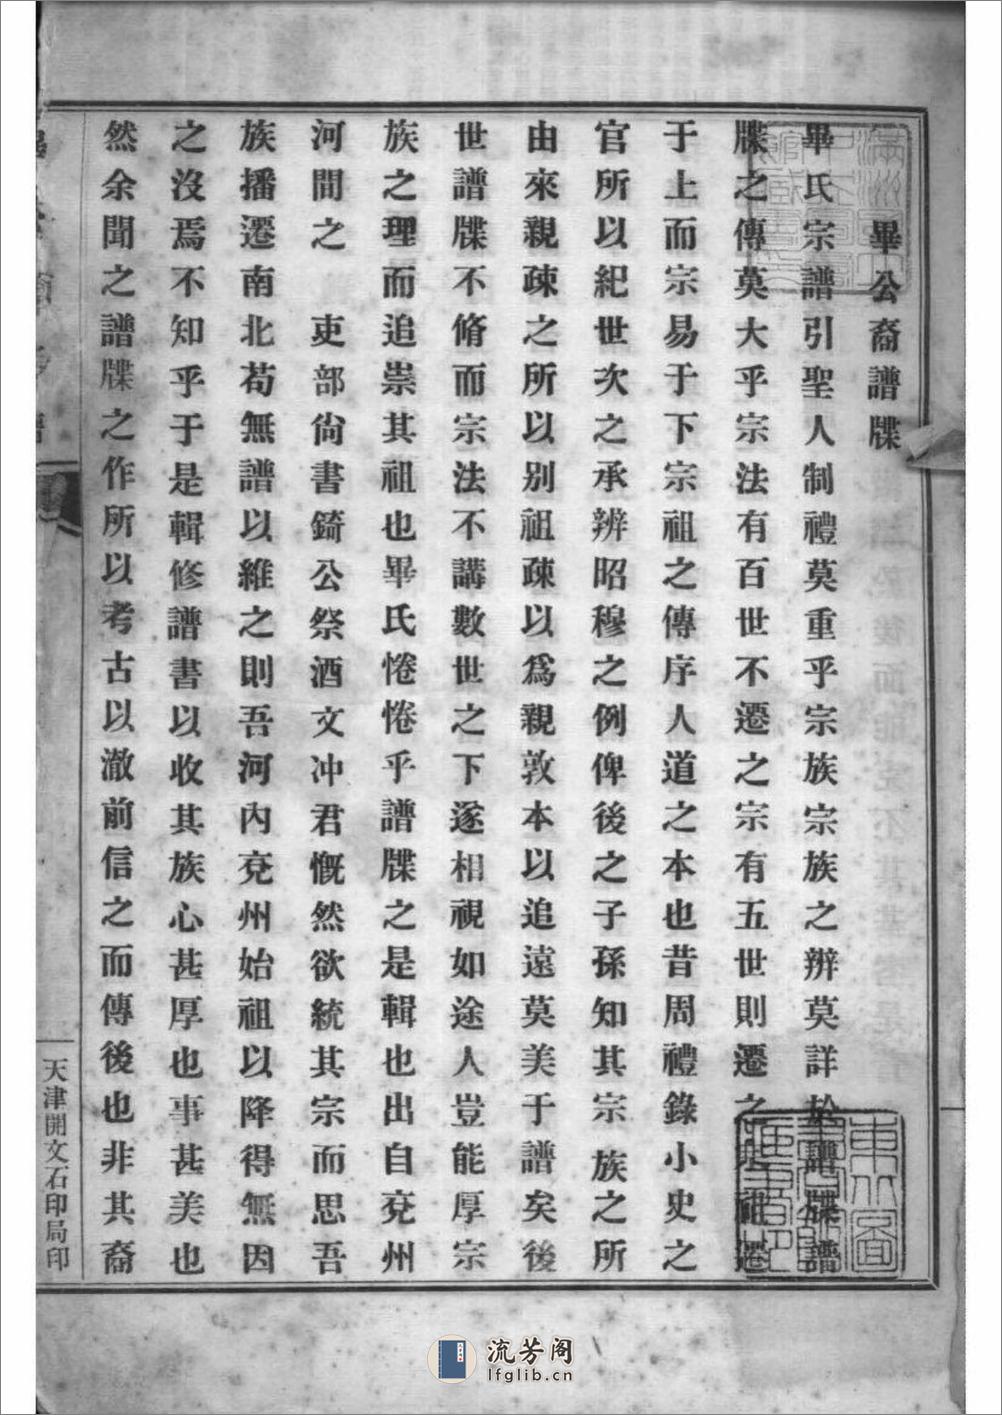 畢公裔譜牒
畢氏宗譜引聖人制禮莫重乎宗族宗族之辨莫詳於譜牒譜
牒之傳莫大乎宗法有百世不遷之宗有五世則遷之宗祖遷
于上而宗易于下宗祖之傳序人道之本也昔周禮錄小史之
官所以紀世次之承辨昭穆之例俾後之子孫知其宗族之所
由來親疎之所以別祖疎以爲親敦本以追遠莫美于譜矣後
世譜牒不脩而宗法不講數世之下遂相視如途人豈能厚宗
族之理而追崇其祖也畢氏惓惓乎譜牒之是輯也出自兗州
河間之 吏部尙書錡公祭酒文冲君慨然欲統其宗而思吾
族播遷南北苟無譜以維之則吾河內兗州始祖以降得無因
之沒焉不知乎于是輯修譜書以收其族心甚厚也事甚美也
然余聞之譜牒之作所以考古以澈前信之而傳後也非其裔
天津開文石印局印
流芳阁
lfglib.cn